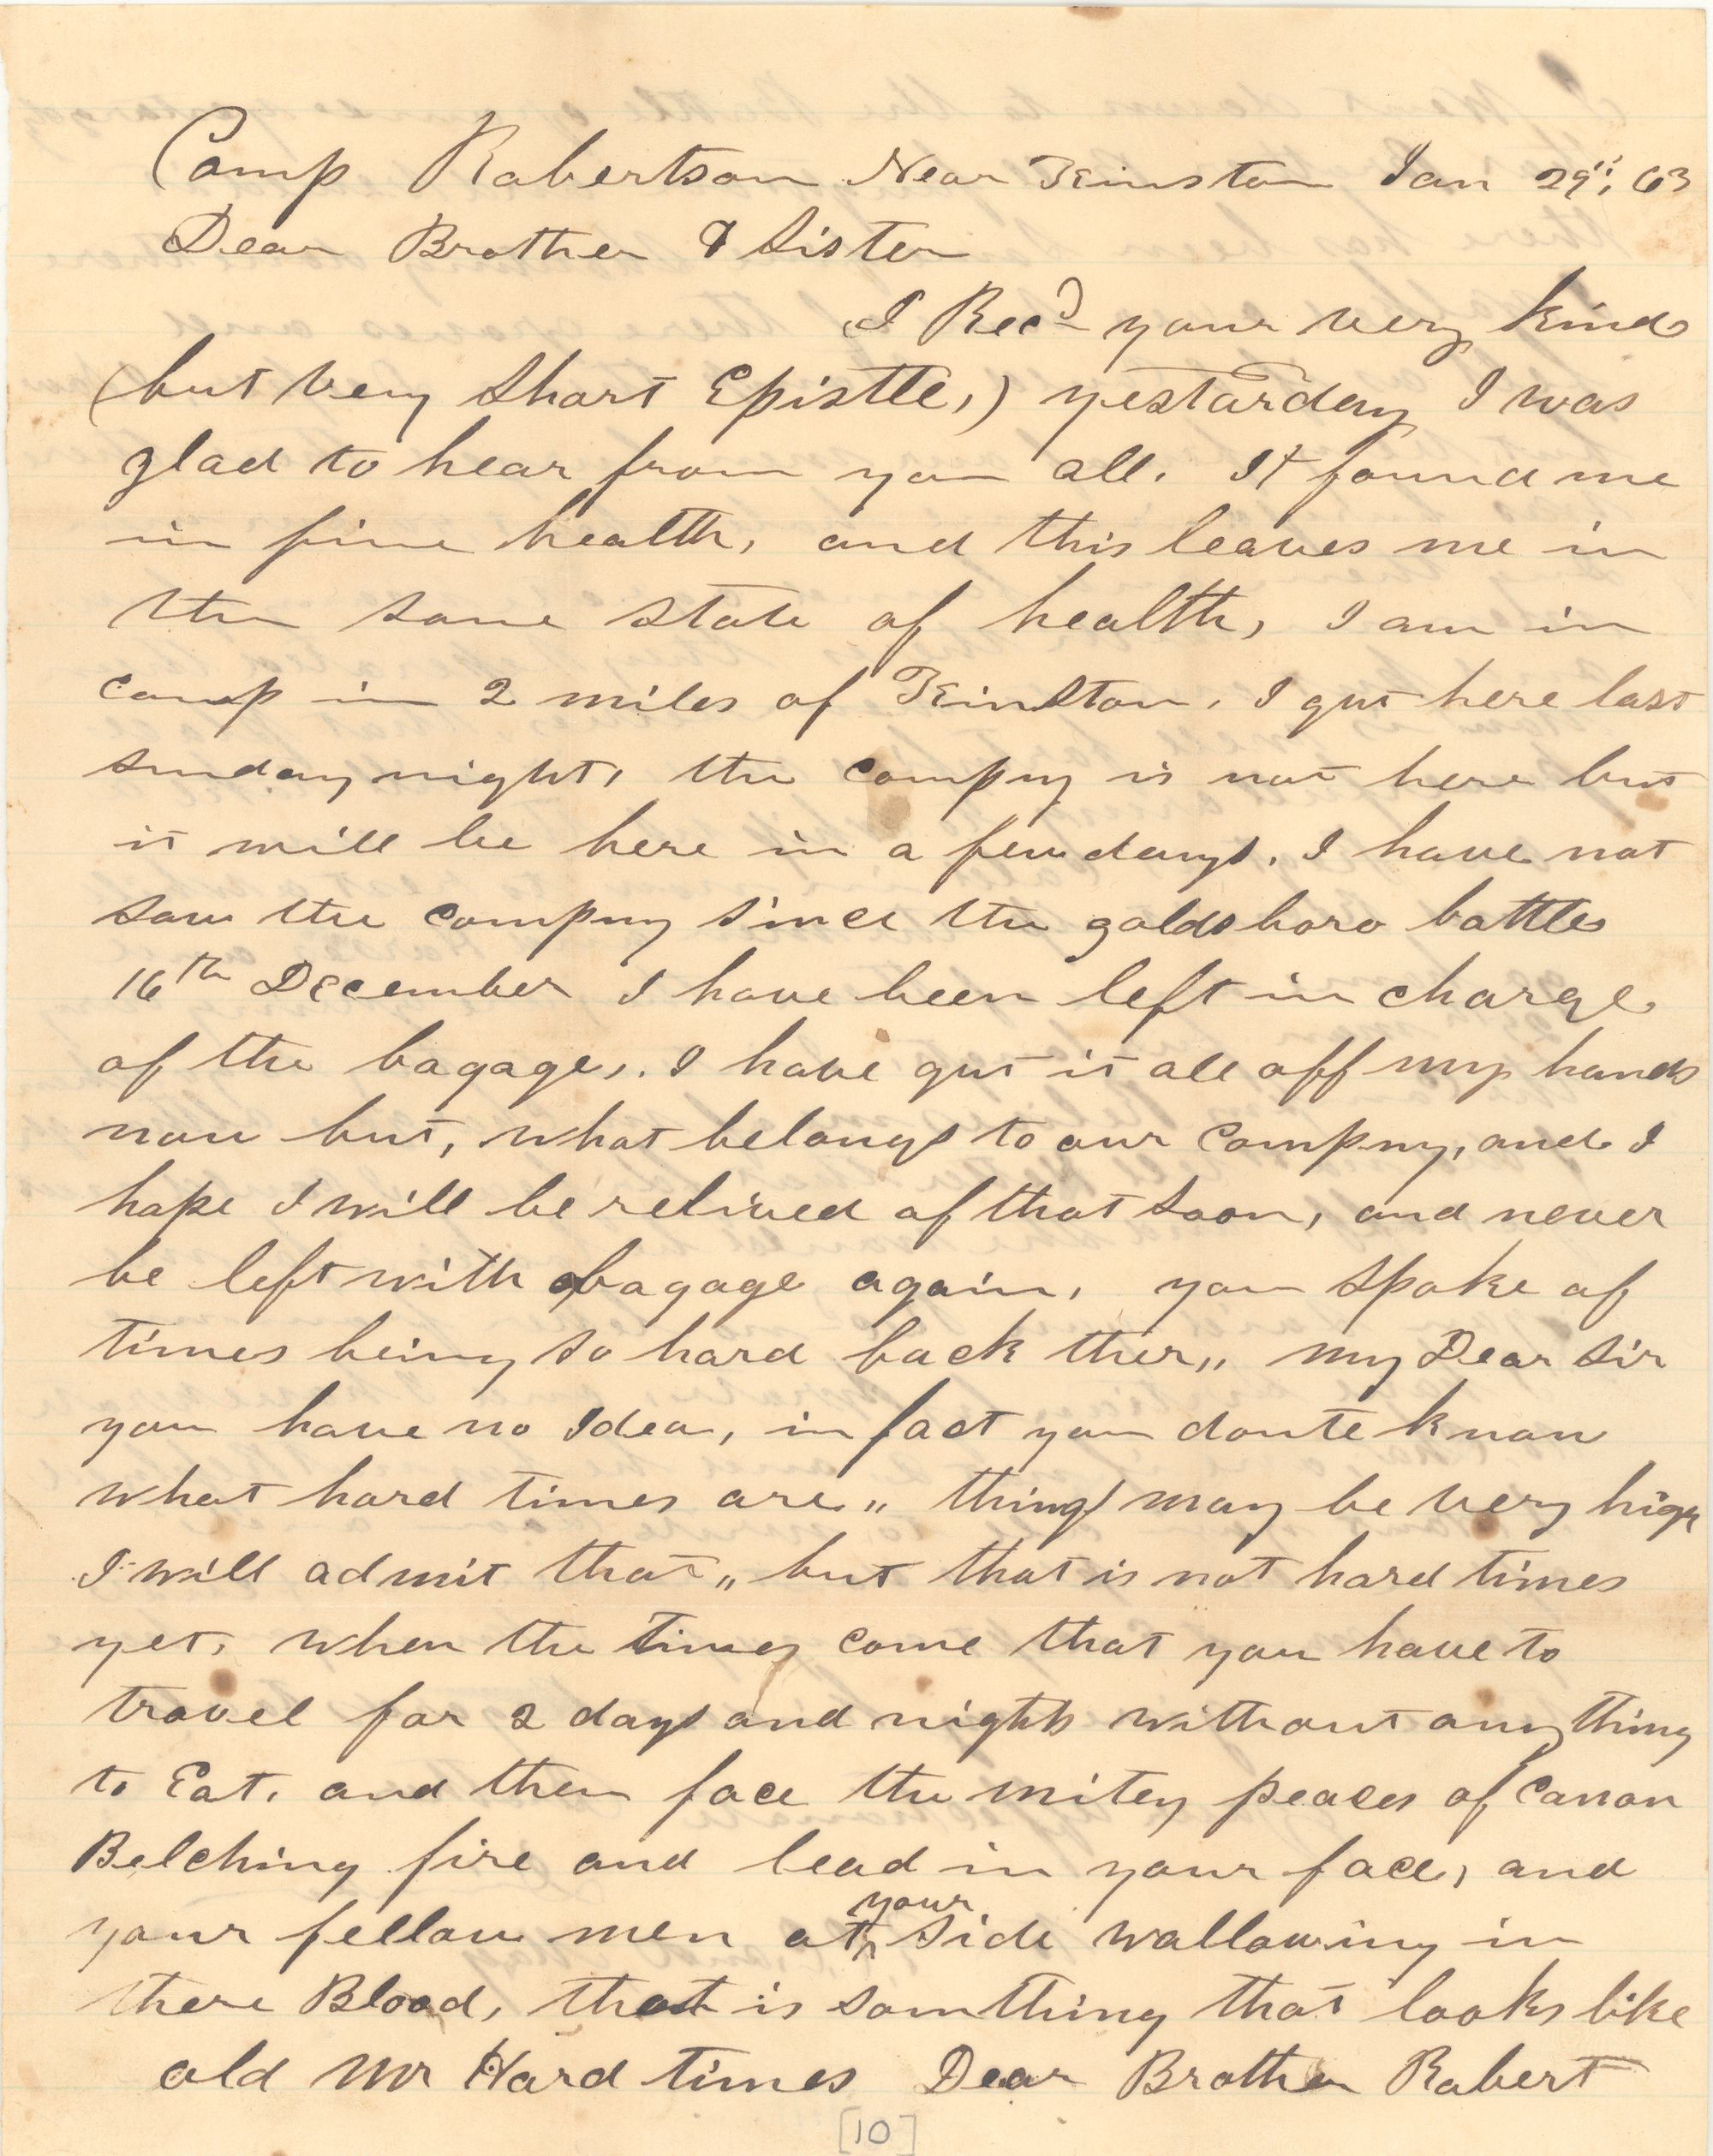 Camp Robertson Near Kinston Jan 29th, 63
Dear Brother & Sister
I Recd your very kind
(but very short Epistle,) yestarday I was
glad to hear from you all. It found me
in fine health, and this leaves me in
the same state of health, I am in
camp in 2 miles of Kinston, I gut here last
sunday night, the compny is not here but
it will be here in a few days, I have not
saw the compny since the goldsboro battle
16th December I have been left in charge
of the bagage,. I have gut it all off my hands
now but, what belongs to our compny, and I
hope I will be relived of that soon, and never
be left with bagage again, you spoke of
times being so hard back ther,, my Dear Sir
you have no Idea, in fact you donte know
what hard times are,, things may be very high
I will admit that,, but that is not hard times
yet, when the times come that you have to
travel for 2 days and nights without any thing
to Eat, and then face the mitey peaces of Canon
Belching fire and lead in your face, and
your fellow men at your side wallowing in
there Blood, that is somthing that looks like
old Mr Hard times Dear Brother Robert
[10]